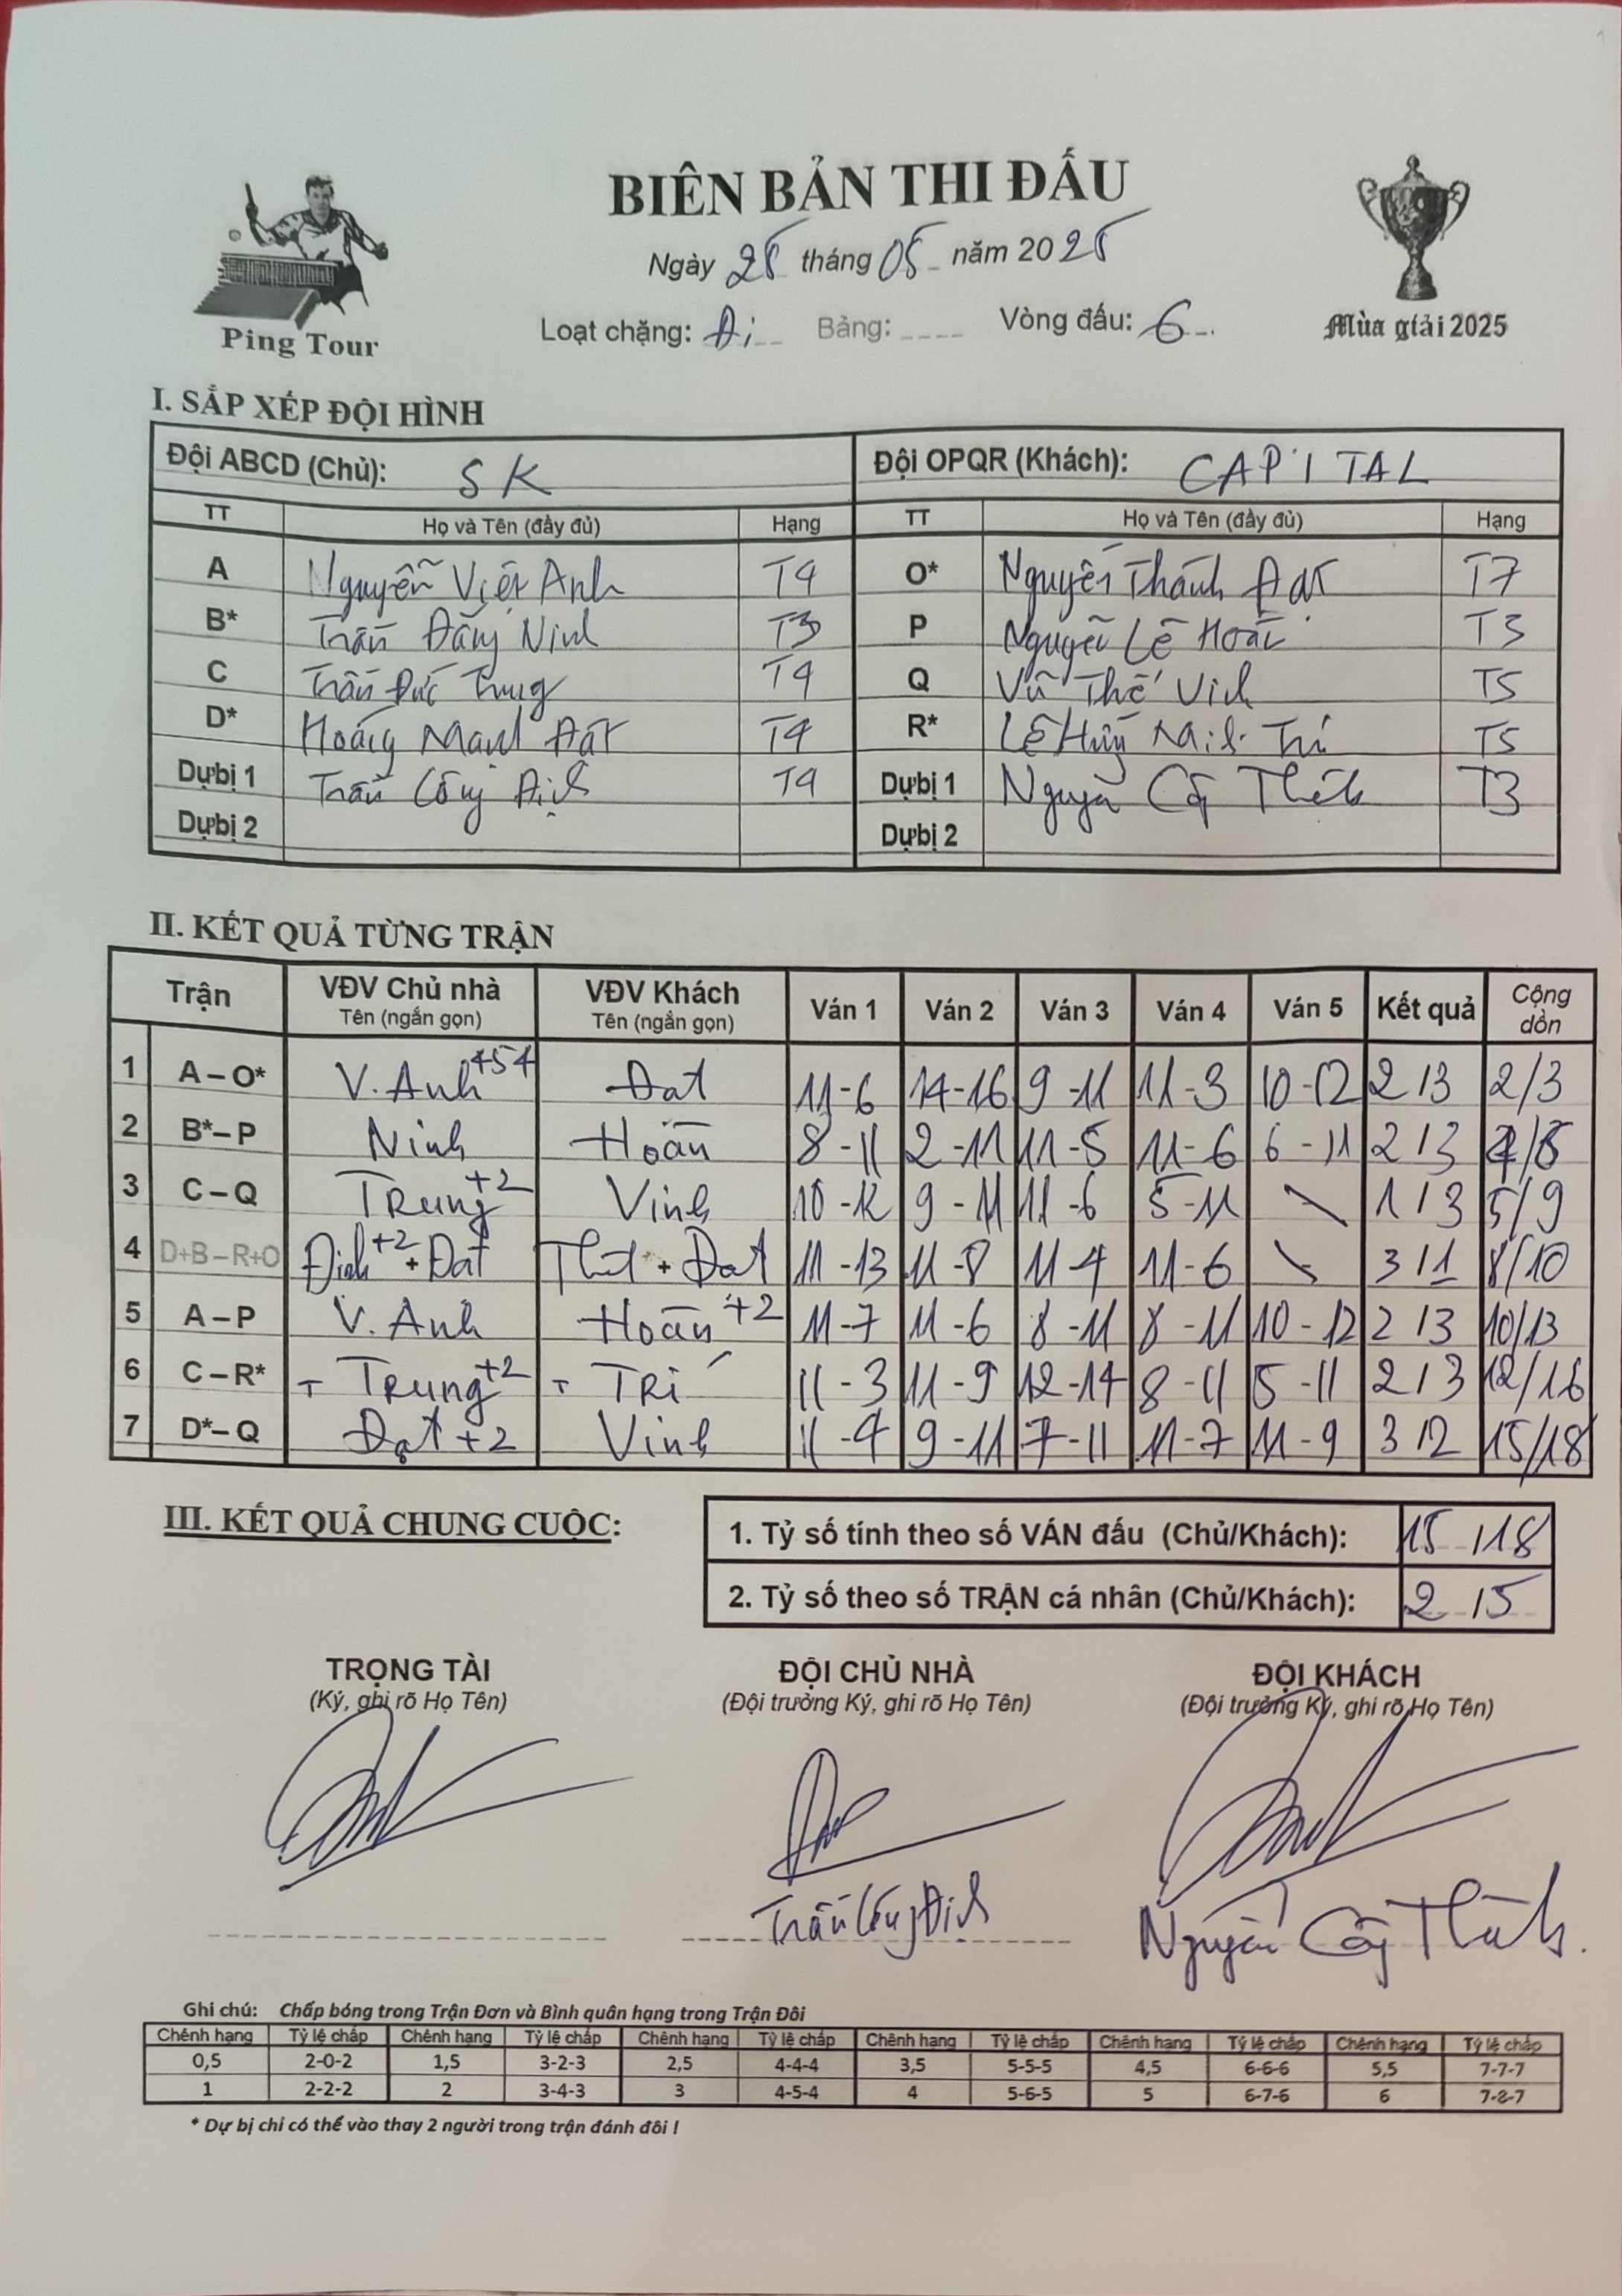 BIÊN BẢN THI ĐẤU
Ngày 25 tháng 05 năm 2025
Loạt chặng: Đi Bảng: Vòng đấu: 6
Ping Tour
Mùa giải 2025
I. SẮP XẾP ĐỘI HÌNH
Đội ABCD (Chủ): SK Đội OPQR (Khách): CAPITAL
TT Họ và Tên (đầy đủ) Hạng TT Họ và Tên (đầy đủ) Hạng
A Nguyễn Việt Anh T4 O* Nguyễn Thành Đạt T7
B* Trần Đăng Ninh T3 P Nguyễn Lê Hoàn T3
C Trần Đức Trung T4 Q Vũ Thế Vinh T5
D* Hoàng Mạnh Đạt T4 R* Lê Huy Trí T5
Dự bị 1 Trần Công Định T4 Dự bị 1 Nguyễn T3
Dự bị 2 Dự bị 2
II. KẾT QUẢ TỪNG TRẬN
Trận VĐV Chủ nhà Tên (ngắn gọn) VĐV Khách Tên (ngắn gọn) Ván 1 Ván 2 Ván 3 Ván 4 Ván 5 Kết quả Cộng dồn
1 A – O* V. Anh +454 Đạt 11-6 14-16 9-11 11-3 10-12 2/3 2/3
2 B* – P Ninh Hoàn 8-11 2-11 11-5 11-6 6-11 2/3 4/6
3 C – Q Trung +2 Vinh 10-12 9-11 11-6 5-11 \ 1/3 5/9
4 D+B – R+O Định +2 + Đạt + Đạt 11-13 11-8 11-4 11-6 \ 3/1 8/10
5 A – P V. Anh Hoàn +2 11-7 11-6 8-11 8-11 10-12 2/3 10/13
6 C – R* - Trung +2 - Trí 11-3 11-9 12-14 8-11 5-11 2/3 12/16
7 D* – Q Đạt +2 Vinh 11-4 9-11 7-11 11-7 11-9 3/2 15/18
III. KẾT QUẢ CHUNG CUỘC:
1. Tỷ số tính theo số VÁN đấu (Chủ/Khách): 15/18
2. Tỷ số theo số TRẬN cá nhân (Chủ/Khách): 2/5
TRỌNG TÀI ĐỘI CHỦ NHÀ ĐỘI KHÁCH
(Ký, ghi rõ Họ Tên) (Đội trưởng Ký, ghi rõ Họ Tên) (Đội trưởng Ký, ghi rõ Họ Tên)
Trần Công Định Nguyễn
Ghi chú: Chấp bóng trong Trận Đơn và Bình quân hạng trong Trận Đôi
Chênh hạng Tỷ lệ chấp Chênh hạng Tỷ lệ chấp Chênh hạng Tỷ lệ chấp Chênh hạng Tỷ lệ chấp Chênh hạng Tỷ lệ chấp Chênh hạng Tỷ lệ chấp
0,5 2-0-2 1,5 3-2-3 2,5 4-4-4 3,5 5-5-5 4,5 6-6-6 5,5 7-7-7
1 2-2-2 2 3-4-3 3 4-5-4 4 5-6-5 5 6-7-6 6 7-8-7
* Dự bị chỉ có thể vào thay 2 người trong trận đánh đôi !